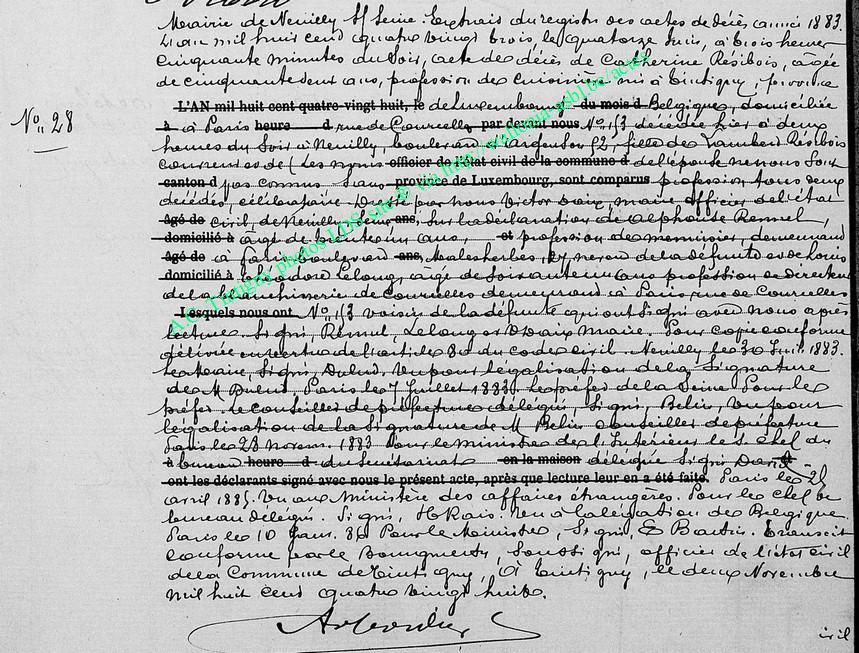 Mairie de Neuilly s/ Seine. Extrait du registre des actes de décès année 1883.
L'an mil huit cent quatre vingt trois le quatorze Juin, à trois heures
Cinquante minutes du Soir, acte de décès de Catherine Résibois, âgée
de cinquante deux ans, profession de Cuisinière, née à Tintigny, province
L'AN mil huit cent quatre-vingt huit, le de Luxembourg du mois d Belgique, domiciliée
No 28
à à Paris heure d rue de Courcelles par devant nous No 153 décédée hier à deux
heures du Soir à Neuilly, boulevard d'Argenson 52, fille de Lambert Résibois
officier de l'état civil de la commune d de l'épouse ne nous sont
canton d pas connus Sans province de Luxembourg, sont comparus profession tous deux
décédés, célibataire. Dressé par nous Victor Daix, maire officier de l'état
âgé de civil, de Neuilly ans, Sur la déclaration de Alphouse Remul,
domicilié à âgé de trente un ans, et profession de menuisier, demeurant
âgé de à Paris boulevard ans, Malesherbes, neveu de la défunte et de Louis
domicilié à Théodore Lelong, âgé de Soixante un ans profession de directeur
de la blanchisserie de Courcelles demeurant à Paris, rue de Courcelles
Lesquels nous ont No 153 voisin de la défunte qui ont Signé avec nous après
lecture. Signé, Remul, Lelong et Daix Maire. Pour copie conforme
délivrée en vertu de l'article 80 du code civil. Neuilly le 30 Juin 1883.
Le Maire, Signé, Vu pour légalisation de la Signature
de M Paris le 7 Juillet 1883. Le préfet de la Seine Pour le
préfet. Le conseiller de préfecture délégué, Signé, Belin, Vu pour
légalisation de la Signature de M Belin Conseiller de préfecture
Paris le 28 novem. 1883 Pour le ministre de l'Intérieur le S. chef du
à bureau heure d du Secrétariat en la maison délégué Signé David et
ont les déclarants signé avec nous le présent acte, après que lecture leur en a été faite. Paris le 25
avril 1885. Vu aux Ministère des affaires étrangères. Pour le chef de
bureau délégué. Signé, Vu à la légation de Belgique
Paris le 10 Janv. 86 Pour le Ministre, Signé, Transcrit
conforme par le Bourgmestre, Soussigné, officier de l'état civil
de la Commune de Tintigny, à Tintigny, le deux Novembre
mil huit cent quatre vingt huit.
ivil